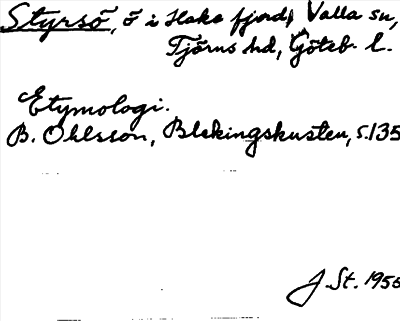 Styrsö, ö i Hake fjord, Valla sn,
Tjörns hd, Göteb. l.
Etymologi.
B. Ohlsson, Blekingskusten, s. 135
J. St. 1956